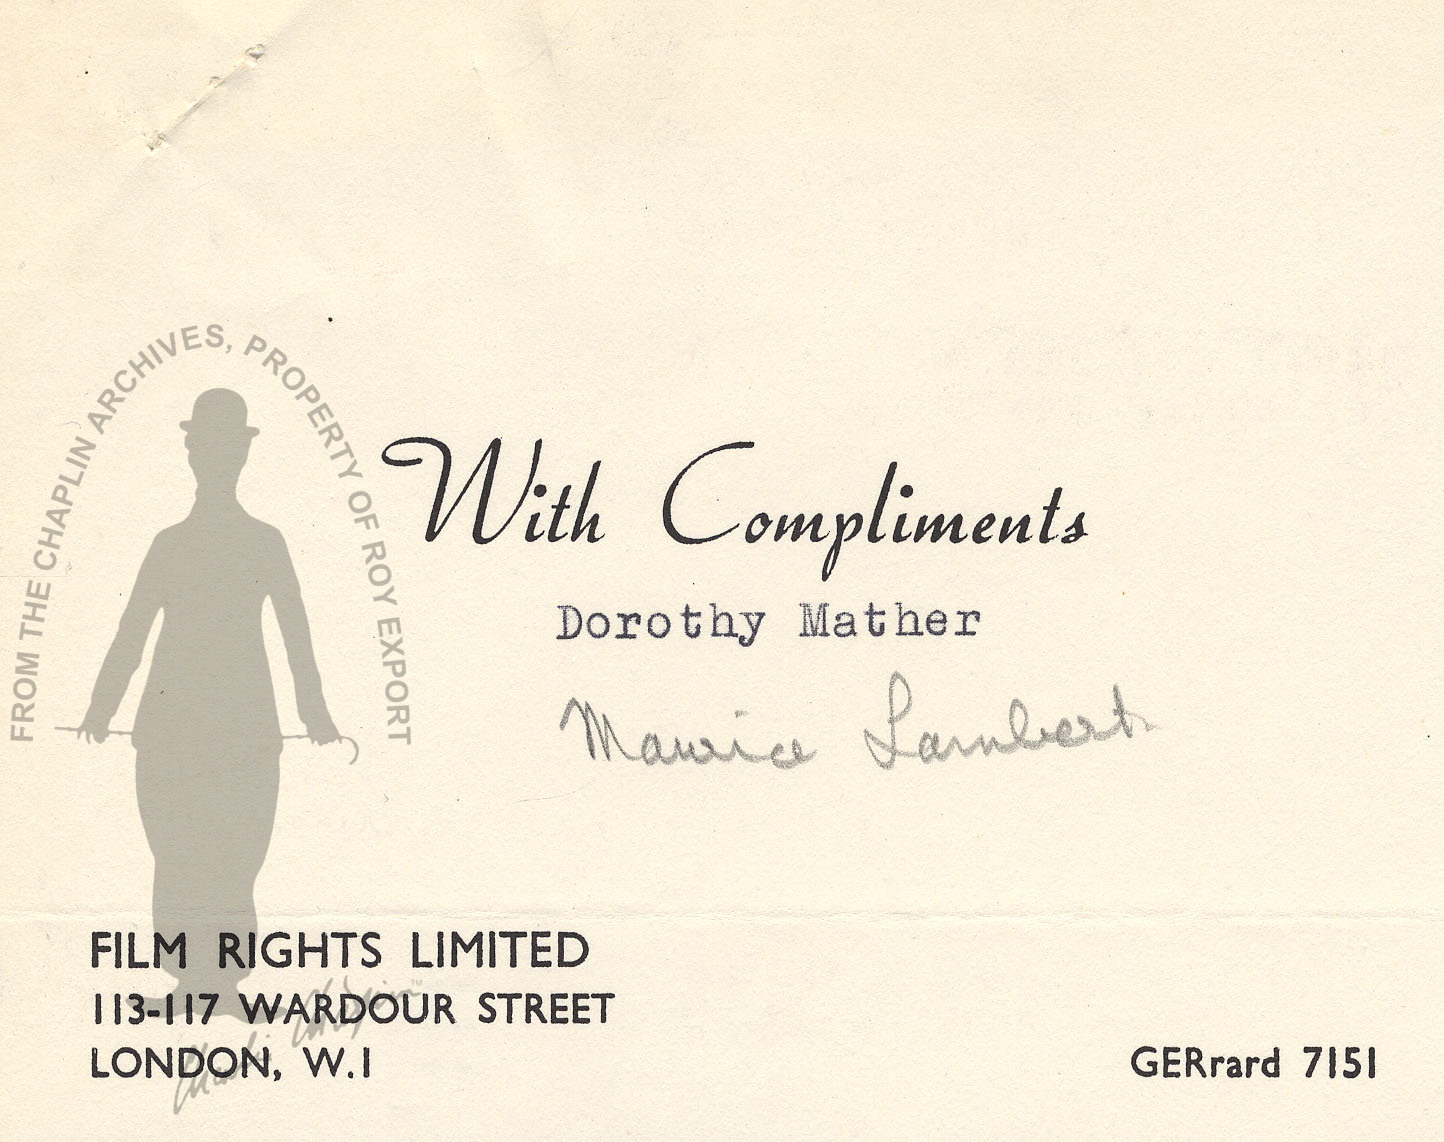 FROM THE CHAPLIN ARCHIVES, PROPERTY OF ROY EXPORT
With Compliments
Dorothy Mather
Maurice Lambert
FILM RIGHTS LIMITED
113-117 WARDOUR STREET
LONDON, W.1
GERrard 7151
Charlie Chaplin™